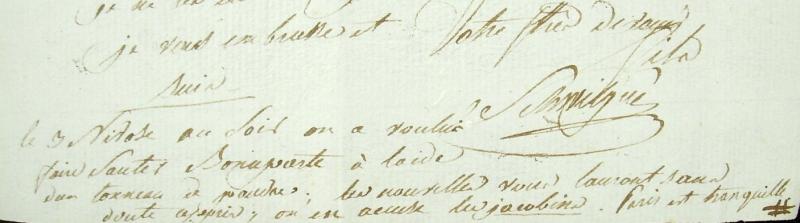 je ne
je vous embrasse et
suis
Votre
fils
le 3 Nivose au soir on a voulu
faire sauter Bonaparte à laide
dun tonneau de poudre; les nouvelles vous lauront sans
doute appris; on en accuse les jacobins. Paris est tranquille #